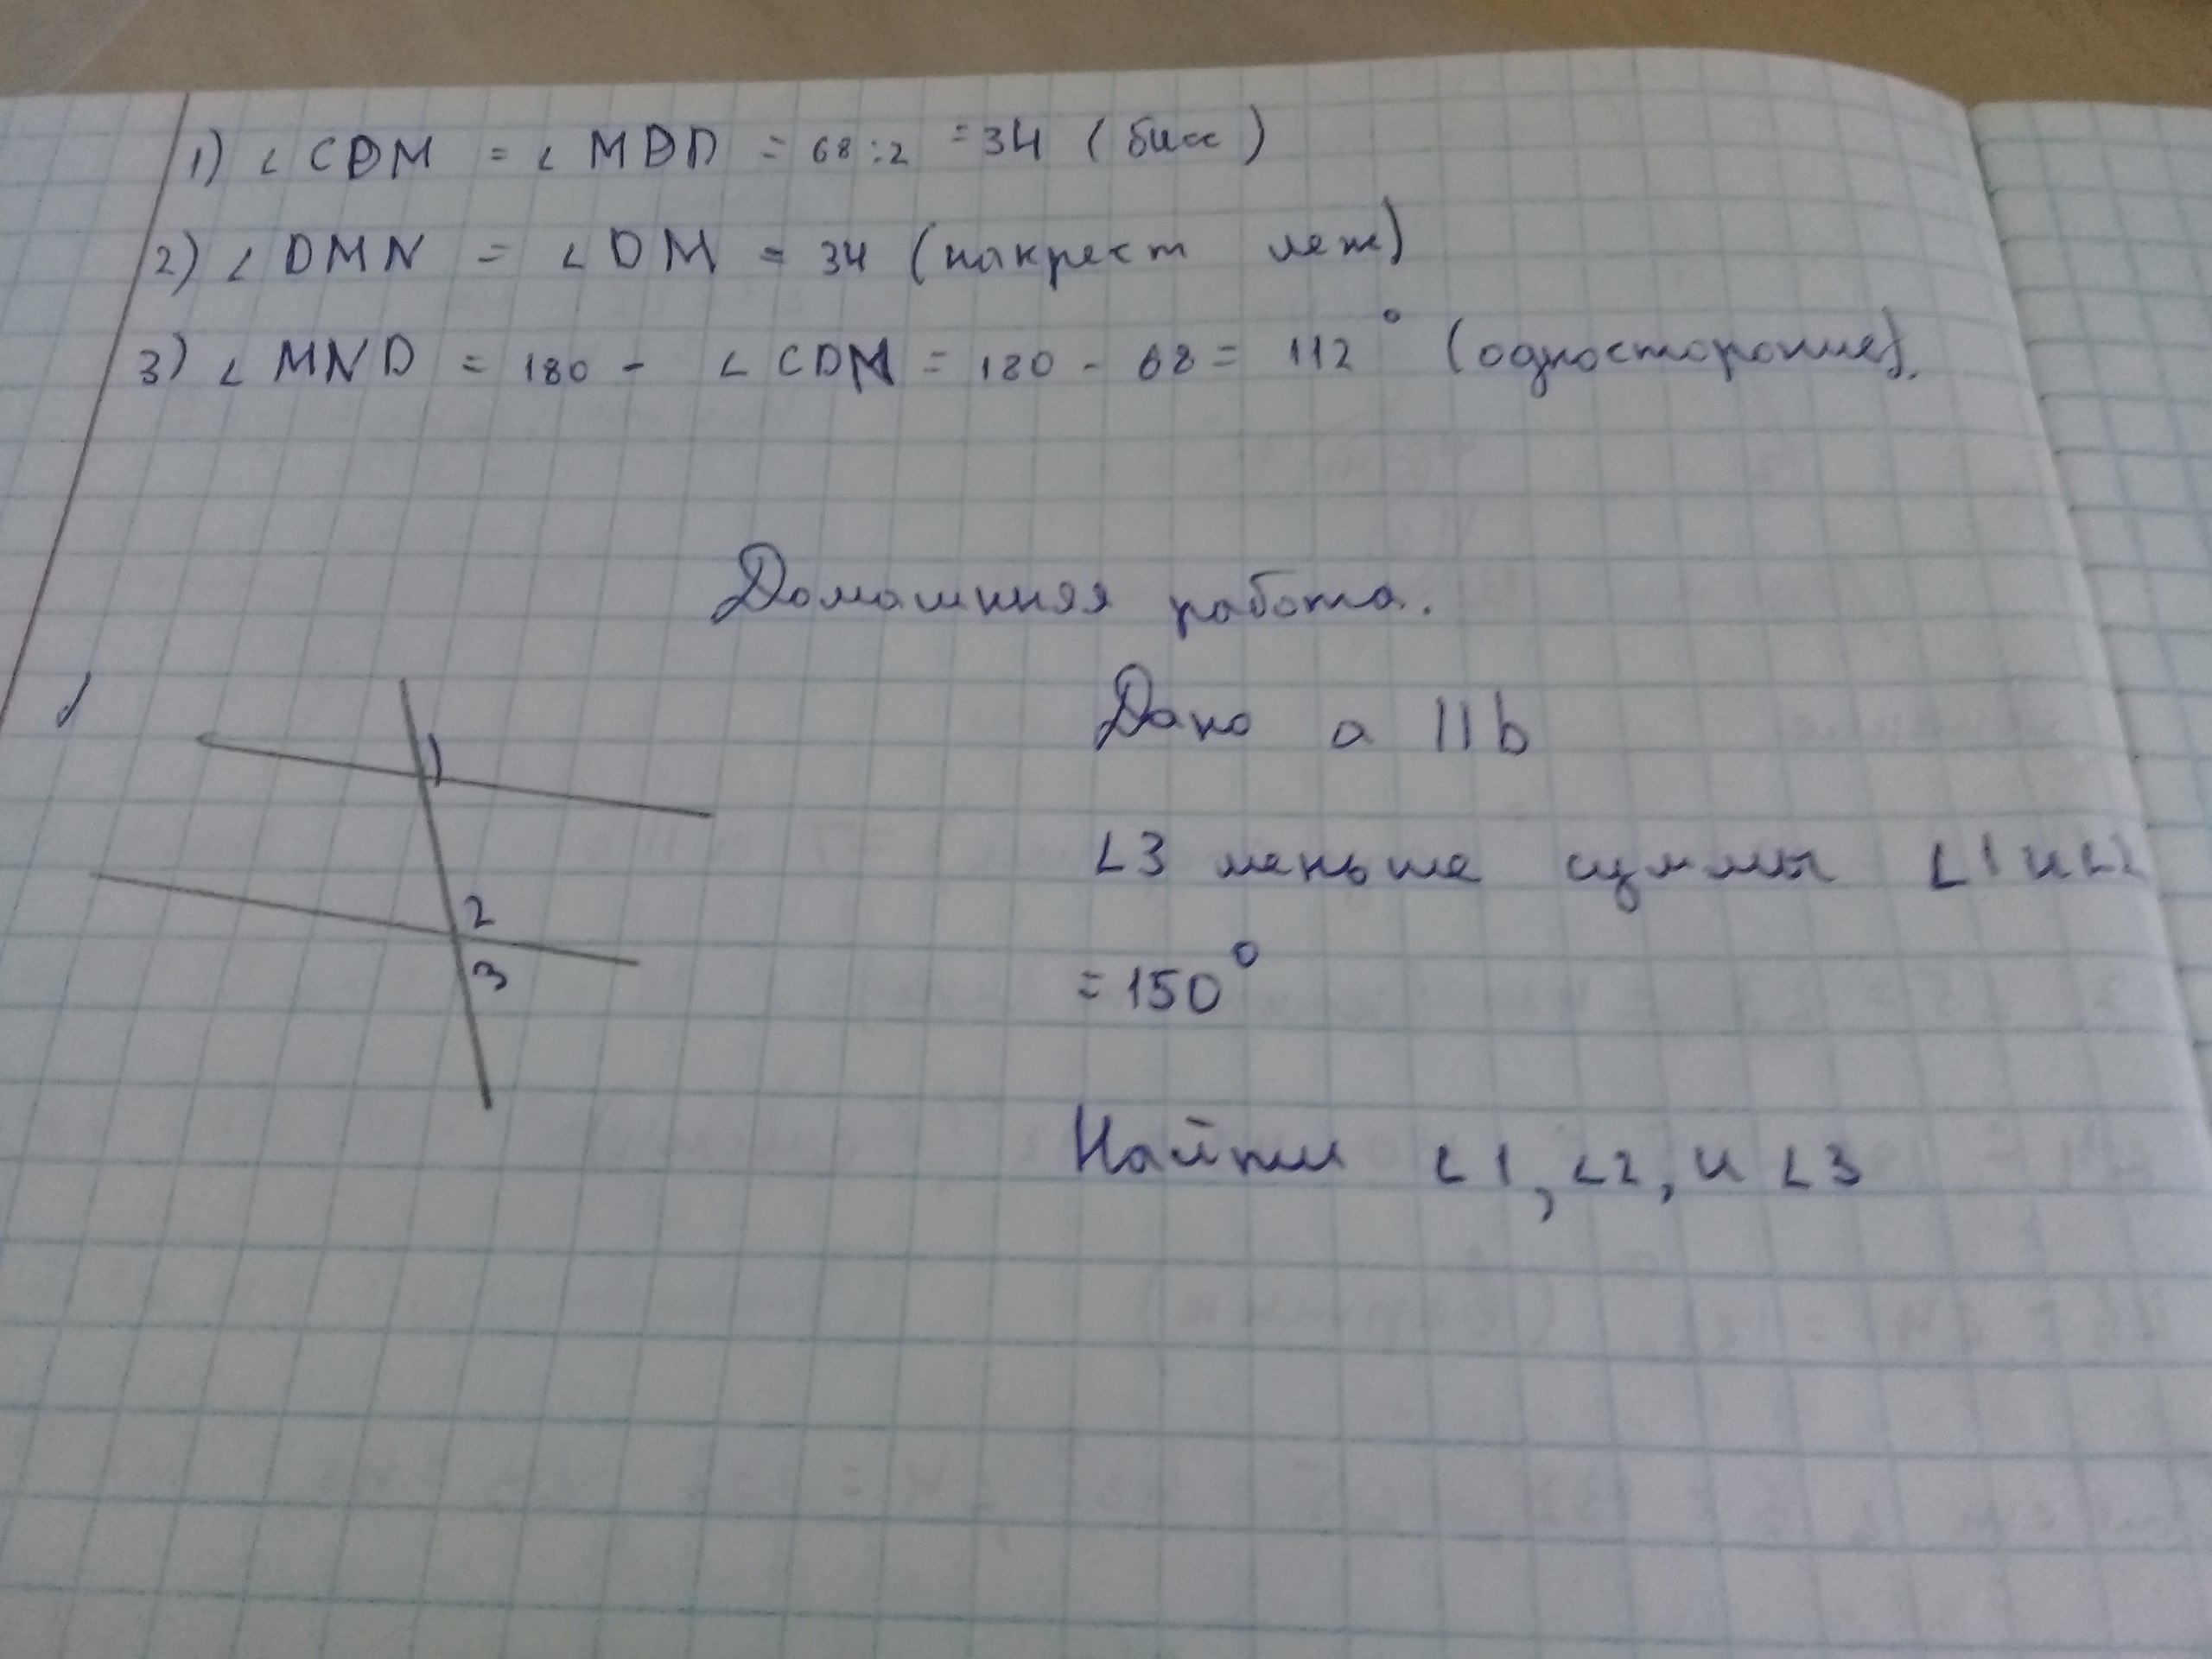 1) ∠ CDM = ∠ MDD = 68:2 = 34 (бисс)
2) ∠ DMN = ∠ DM = 34 (накрест леж)
3) ∠ MND = 180 - ∠ CDN = 180 - 68 = 112° (односторонние).
Домашняя работа.
1
Дано a || b
∠3 меньше суммы ∠1 и ∠2
= 150°
Найти ∠1, ∠2, и ∠3
1
2
3